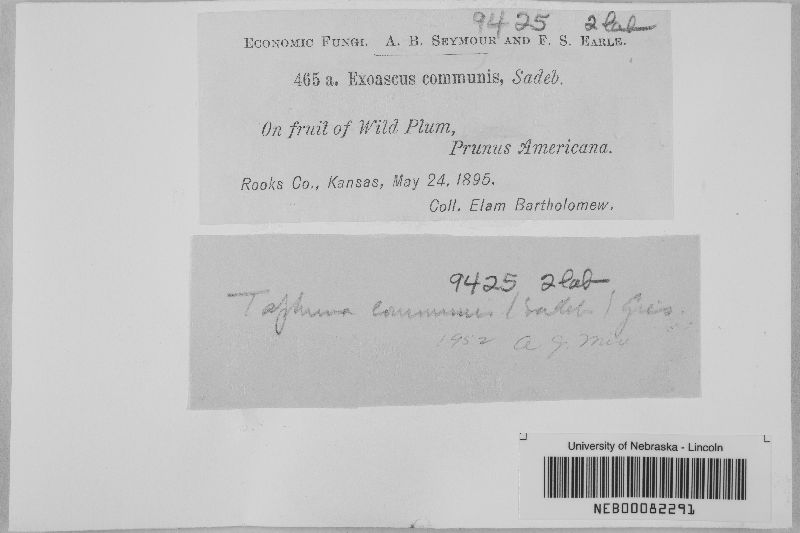 9425 2 lab
Economic Fungi. A. B. Seymour and F. S. Earle.
465 a. Exoascus communis, Sadeb.
On fruit of Wild Plum,
Prunus Americana.
Rooks Co., Kansas, May 24, 1895.
Coll. Elam Bartholomew.
9425 2 lab
Taphrina communis (Sadeb)
1952 A. J. Mix
University of Nebraska - Lincoln
NEB00082291